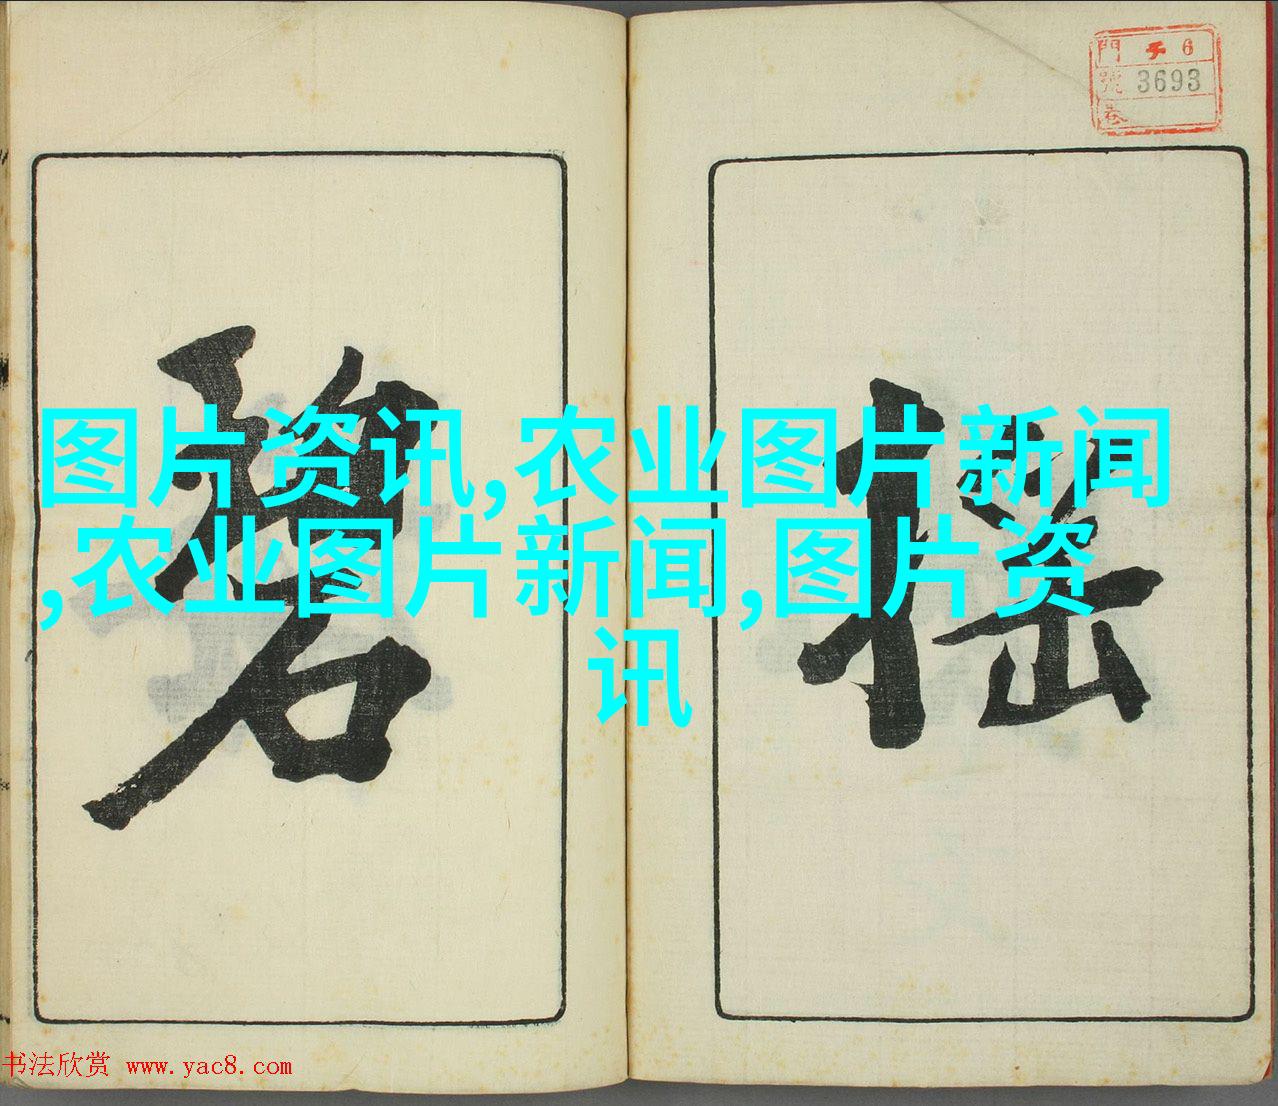 門 チ 6
號 3693
卷
摇
碧
图片资讯,农业图片新闻
,农业图片新闻,图片资
讯
书法欣赏 www.yac8.com